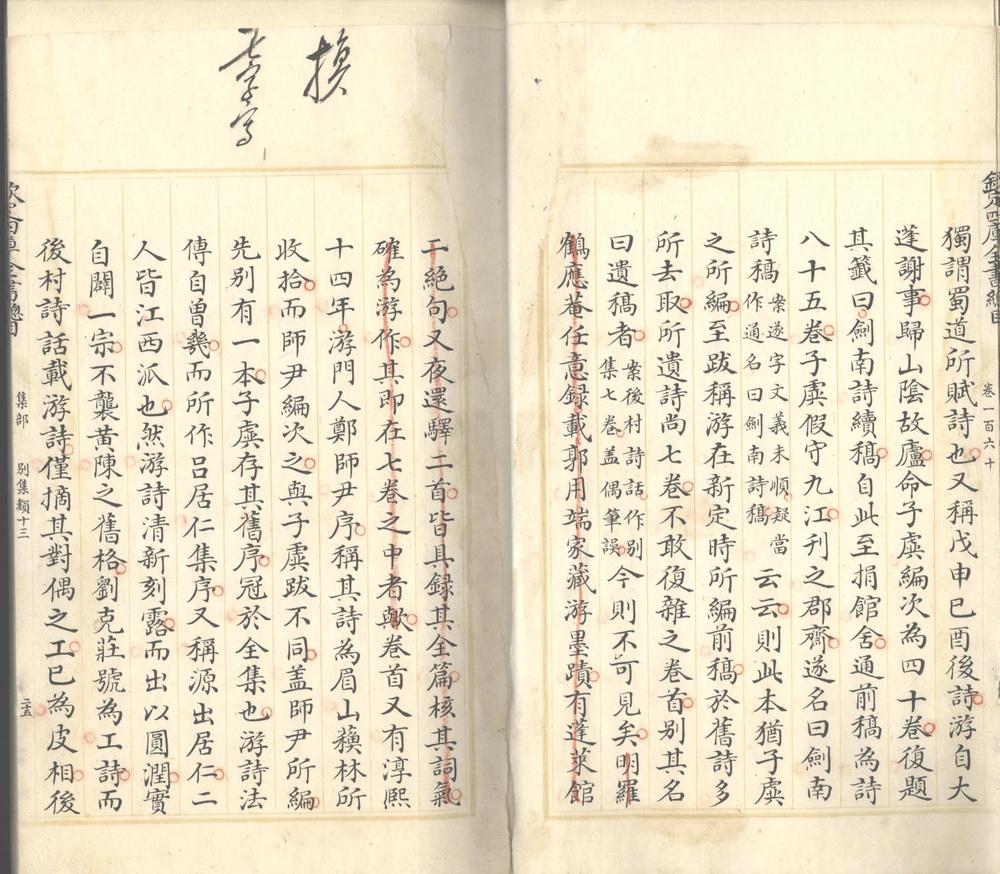 欽定四庫全書總目 卷一百六十
獨謂蜀道所賦詩也又稱戊申巳酉後詩游自大
蓬謝事歸山陰故廬命子虡編次為四十卷復題
其籤曰劍南詩續稿自此至捐館舍通前稿為詩
八十五卷子虡假守九江刊之郡齋遂名曰劍南
詩稿案遂字文義未順疑當作通名曰劍南詩稿云云則此本猶子虡
之所編至跋稱游在新定時所編前稿於舊詩多
所去取所遺詩尚七卷不敢復雜之卷首別其名
曰遺稿者案後村詩話作別集七卷盖偶筆誤今則不可見矣明羅
鶴應菴任意録載郭用端家藏游墨蹟有蓬萊館
換
字寫
干絶句又夜還驛二首皆具録其全篇核其詞氣
確為游作其即在七卷之中者歟卷首又有淳熙
十四年游門人鄭師尹序稱其詩為眉山蘓林所
收拾而師尹編次之與子虡跋不同盖師尹所編
先別有一本子虡存其舊序冠於全集也游詩法
傳自曾幾而所作吕居仁集序又稱源出居仁二
人皆江西派也然游詩清新刻露而出以圓潤實
自闢一宗不襲黄陳之舊格劉克莊號為工詩而
後村詩話載游詩僅摘其對偶之工已為皮相後
欽定四庫全書總目 集部 別集類十三 二十五